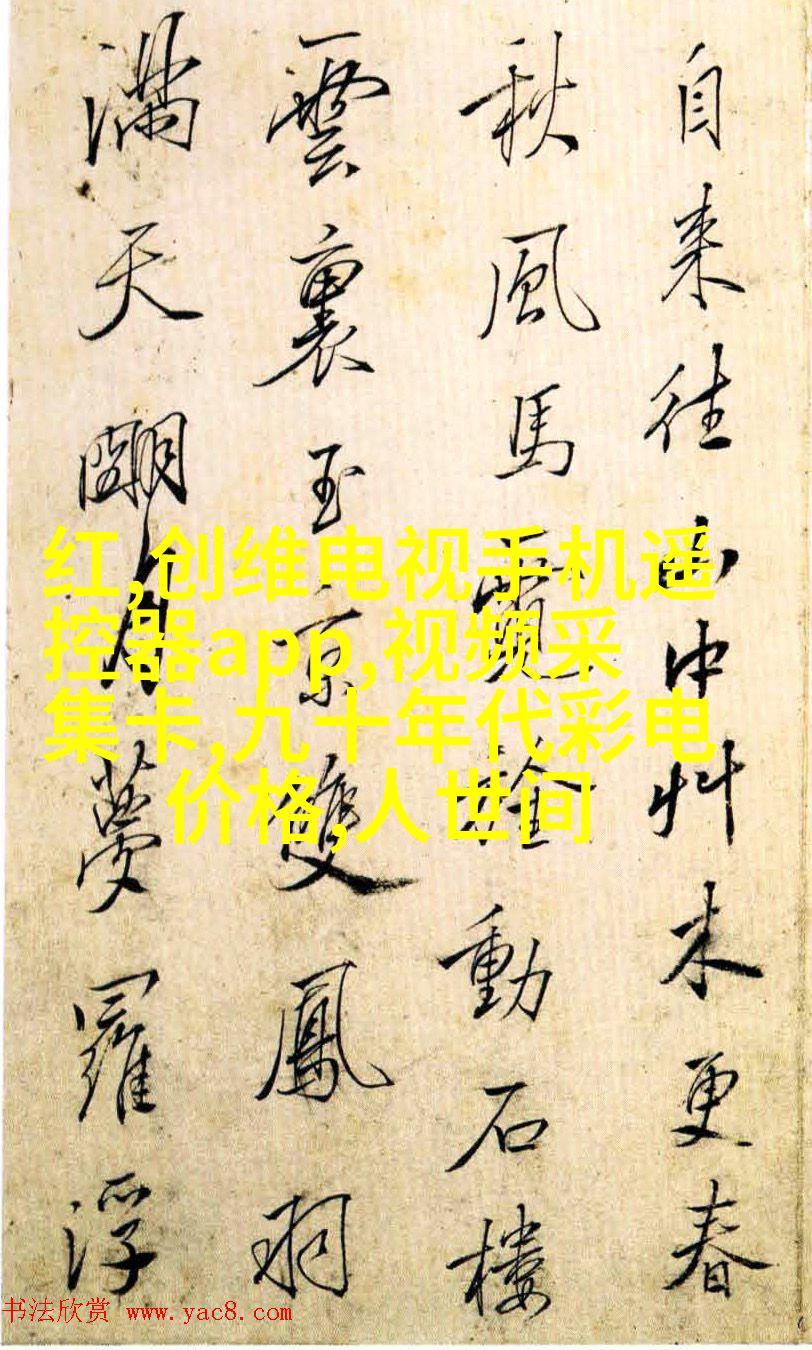 自来往山中艸木更春
秋風馬動石樓
雲裏玉京雙鳳羽
滿天朙月夢羅浮
红,创维电视手机遥
控器app,视频采
集卡,九十年代彩电
价格,人世间
书法欣赏 www.yac8.com